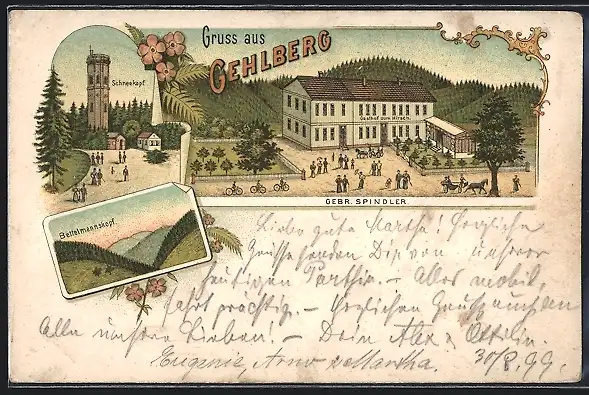 Gruss aus
GEHLBERG
Schneekopf
Gasthof zum Hirsch.
GEBR. SPINDLER
Bettelmannskopf
Liebe gute Martha! Herzliche
Grüsse senden Dir von unserer
heutigen Parthie. – Alles mobil,
Fahrt prächtig. – Herzlichen Gruss auch an
Alle unsere Lieben! – Dein Alex & Ottilie.
Eugenie, Arno & Martha. 30/8.99.